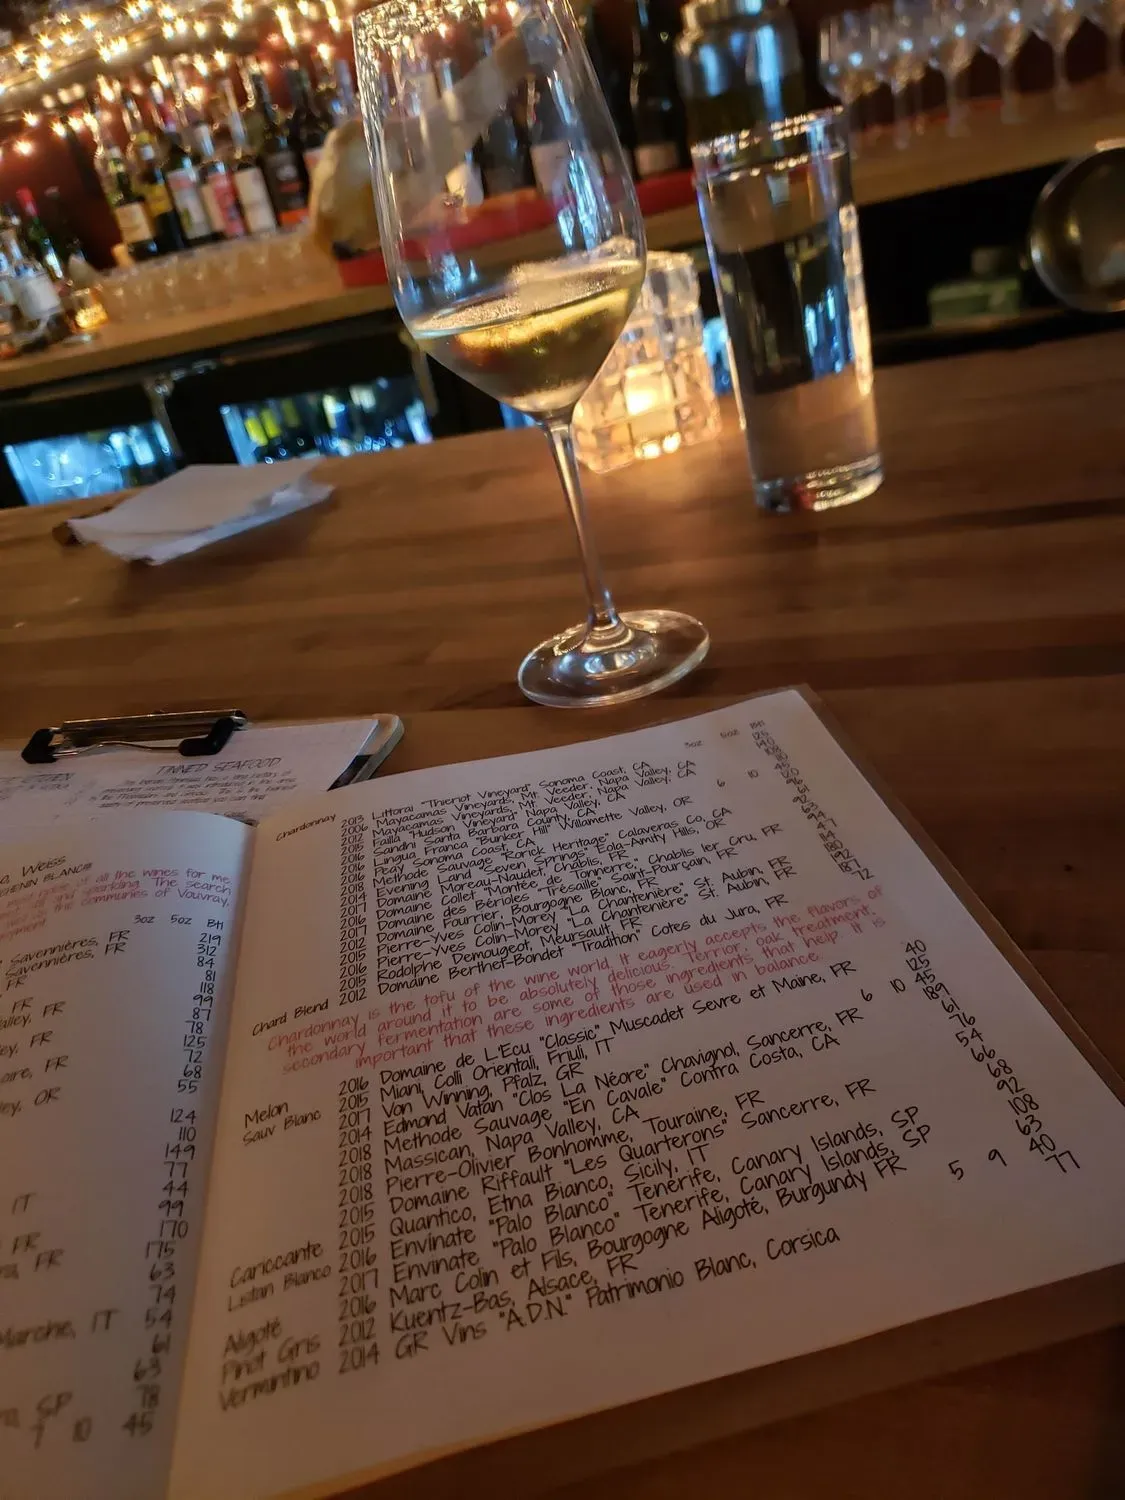 TINNED SEAFOOD
Weiss
CHENIN BLANC!!!
of all the wines for me,
and sparkling. The search
the communes of Vouvray,
3oz 5oz Btl
Savennières, FR 219
Savennières, FR 312
FR 84
81
118
FR 99
Valley, FR 87
78
FR 125
72
FR 68
OR 55
124
110
149
77
IT 44
99
FR 170
FR 175
63
74
Marche, IT 54
61
63
SP 78
7 10 45
3oz 5oz Btl
Chardonnay 2013 Littorai "Thieriot Vineyard" Sonoma Coast, CA 125
2006 Mayacamas Vineyards, Mt. Veeder, Napa Valley, CA
2012 Mayacamas Vineyards, Mt. Veeder, Napa Valley, CA
2015 Failla "Hudson Vineyard" Napa Valley, CA
2016 Sandhi Santa Barbara County, CA 6 10
2016 Lingua Franca "Bunker Hill" Willamette Valley, OR
2016 Peay Sonoma Coast, CA
2018 Methode Sauvage "Rorick Heritage" Calaveras Co., CA
2014 Evening Land "Seven Springs" Eola-Amity Hills, OR
2017 Domaine Moreau-Naudet, Chablis, FR
2016 Domaine Collet "Montée de Tonnerre," Chablis 1er Cru, FR
2017 Domaine des Bérioles "Trésaille" Saint-Pourçain, FR 47
Domaine Fourrier, Bourgogne Blanc, FR 114
2012 Pierre-Yves Colin-Morey "La Chantenière" St. Aubin, FR 180
2015 Pierre-Yves Colin-Morey "La Chantenière" St. Aubin, FR 192
2015 Rodolphe Demougeot, Meursault, FR 187
Chard Blend 2012 Domaine Berthet-Bondet "Tradition" Cotes du Jura, FR 72
Chardonnay is the tofu of the wine world. It eagerly accepts the flavors of
the world around it to be absolutely delicious. Terrior, oak treatment,
secondary fermentation are some of those ingredients that help. It is
important that these ingredients are used in balance.
Melon 2016 Domaine de L'Ecu "Classic" Muscadet Sevre et Maine, FR 40
Sauv Blanc 2015 Miani, Colli Orientali, Friuli, IT 125
2017 Von Winning, Pfalz, GR 6 10 45
2014 Edmond Vatan "Clos La Néore" Chavignol, Sancerre, FR 189
2018 Methode Sauvage "En Cavale" Contra Costa, CA 61
2018 Massican, Napa Valley, CA 76
2018 Pierre-Olivier Bonhomme, Touraine, FR 54
2015 Domaine Riffault "Les Quarterons" Sancerre, FR 66
Cariccante 2015 Quantico, Etna Bianco, Sicily, IT 68
Listan Blanco 2016 Envinate "Palo Blanco" Tenerife, Canary Islands, SP 92
2017 Envinate "Palo Blanco" Tenerife, Canary Islands, SP 108
Aligoté 2016 Marc Colin et Fils, Bourgogne Aligoté, Burgundy FR 63
Pinot Gris 2012 Kuentz-Bas, Alsace, FR 5 9 40
Vermintino 2014 GR Vins "A.D.N." Patrimonio Blanc, Corsica 77